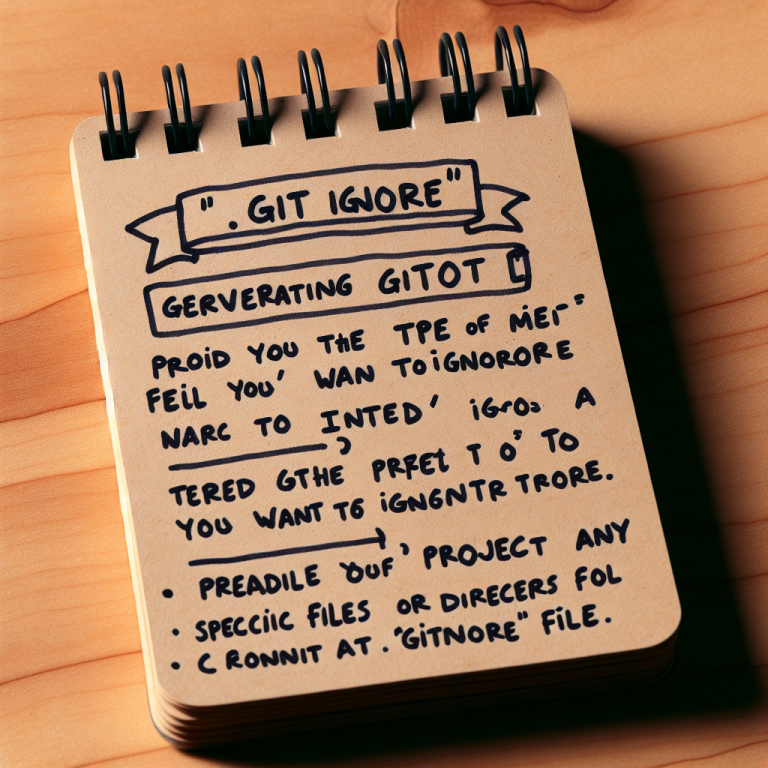 ". GIT IGNORE"
GERVERATING GITOT
PROID YOU THE TPE OF MEI"
FEIL YOU' WAN TOIGNORORE
NARC TO INTED' A
TERED GTHE PRFEET T O' TO
YOU WANT TG IGNGNTR TRORE.
• PREADILE YOUF' PROJECT ANY
• SPECCIIC FILES OR DIRECERS FOL
• C RONNIT AT . "GITNORE" FILE.